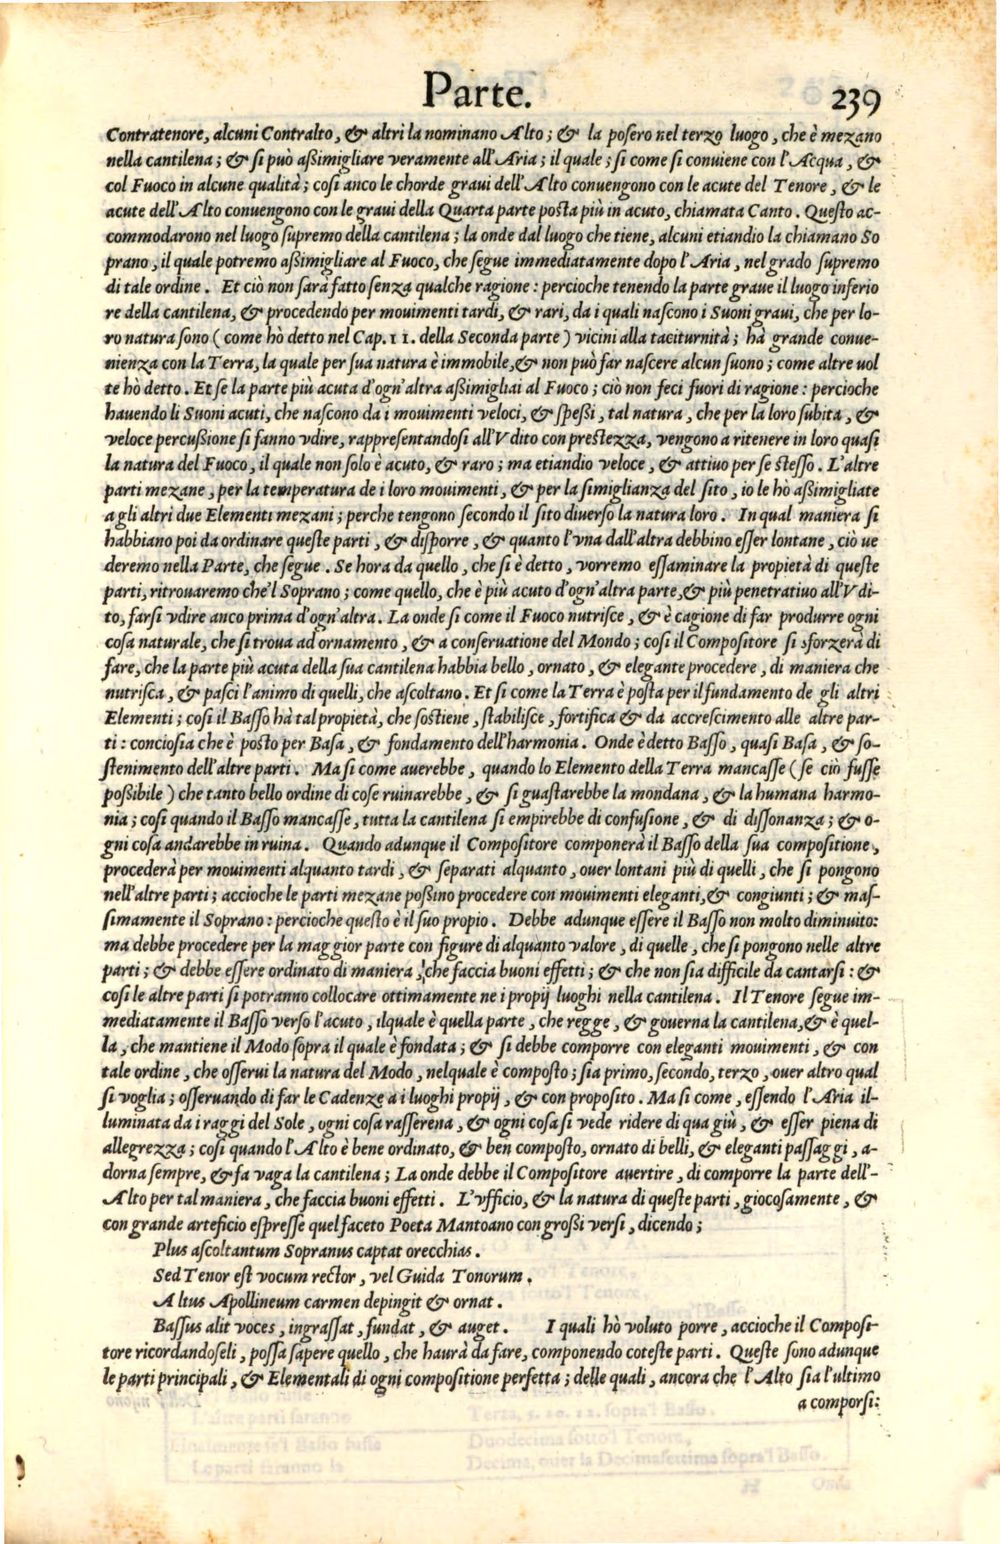 Parte. 239
Contratenore, alcuni Contralto, & altri la nominano Alto; & la posero nel terzo luogo, che è mezano
nella cantilena; & si può aßimigliare veramente all'Aria; il quale; si come si conuiene con l'Acqua, &
col Fuoco in alcune qualità; cosi anco le chorde graui dell'Alto conuengono con le acute del Tenore, & le
acute dell'Alto conuengono con le graui della Quarta parte posta più in acuto, chiamata Canto. Questo ac-
commodarono nel luogo supremo della cantilena; la onde dal luogo che tiene, alcuni etiandio la chiamano So
prano, il quale potremo aßimigliare al Fuoco, che segue immediatamente dopo l'Aria, nel grado supremo
di tale ordine. Et ciò non sarà fatto senza qualche ragione: percioche tenendo la parte graue il luogo inferio
re della cantilena, & procedendo per mouimenti tardi, & rari, da i quali nascono i Suoni graui, che per lo-
ro natura sono (come hò detto nel Cap. 11. della Seconda parte) vicini alla taciturnità; hà grande conue-
nienza con la Terra, la quale per sua natura è immobile, & non può far nascere alcun suono; come altre vol
te hò detto. Et se la parte più acuta d'ogn'altra aßimigliai al Fuoco; ciò non feci fuori di ragione: percioche
hauendo li Suoni acuti, che nascono da i mouimenti veloci, & speßi, tal natura, che per la loro subita, &
veloce percußione si fanno vdire, rappresentandosi all'Vdito con prestezza, vengono a ritenere in loro quasi
la natura del Fuoco, il quale non solo è acuto, & raro; ma etiandio veloce, & attiuo per se stesso. L'altre
parti mezane, per la temperatura de i loro mouimenti, & per la simiglianza del sito, io le hò aßimigliate
a gli altri due Elementi mezani; perche tengono secondo il sito diuerso la natura loro. In qual maniera si
habbiano poi da ordinare queste parti, & disporre, & quanto l'vna dall'altra debbino esser lontane, ciò ue
deremo nella Parte, che segue. Se hora da quello, che si è detto, vorremo essaminare la propietà di queste
parti, ritrouaremo che'l Soprano; come quello, che è più acuto d'ogn'altra parte, & più penetratiuo all'Vdi-
to, farsi vdire anco prima d'ogn'altra. La onde si come il Fuoco nutrisce, & è cagione di far produrre ogni
cosa naturale, che si troua ad ornamento, & a conseruatione del Mondo; cosi il Compositore si sforzerà di
fare, che la parte più acuta della sua cantilena habbia bello, ornato, & elegante procedere, di maniera che
nutrisca, & pasci l'animo di quelli, che ascoltano. Et si come la Terra è posta per il fundamento de gli altri
Elementi; cosi il Basso hà tal propietà, che sostiene, stabilisce, fortifica & da accrescimento alle altre par-
ti: conciosia che è posto per Basa, & fondamento dell'harmonia. Onde è detto Basso, quasi Basa, & so-
stenimento dell'altre parti. Ma si come auerebbe, quando lo Elemento della Terra mancasse (se ciò fusse
poßibile) che tanto bello ordine di cose ruinarebbe, & si guastarebbe la mondana, & la humana harmo-
nia; cosi quando il Basso mancasse, tutta la cantilena si empirebbe di confusione, & di dissonanza; & o-
gni cosa andarebbe in ruina. Quando adunque il Compositore componerà il Basso della sua compositione,
procederà per mouimenti alquanto tardi, & separati alquanto, ouer lontani più di quelli, che si pongono
nell'altre parti; accioche le parti mezane poßino procedere con mouimenti eleganti, & congiunti; & mas-
simamente il Soprano: percioche questo è il suo propio. Debbe adunque essere il Basso non molto diminuito:
ma debbe procedere per la maggior parte con figure di alquanto valore, di quelle, che si pongono nelle altre
parti; & debbe essere ordinato di maniera, che faccia buoni effetti; & che non sia difficile da cantarsi: &
cosi le altre parti si potranno collocare ottimamente ne i propij luoghi nella cantilena. Il Tenore segue im-
mediatamente il Basso verso l'acuto, ilquale è quella parte, che regge, & gouerna la cantilena, & è quel-
la, che mantiene il Modo sopra il quale è fondata; & si debbe comporre con eleganti mouimenti, & con
tale ordine, che osserui la natura del Modo, nelquale è composto; sia primo, secondo, terzo, ouer altro qual
si voglia; osseruando di far le Cadenze a i luoghi propij, & con proposito. Ma si come, essendo l'Aria il-
luminata da i raggi del Sole, ogni cosa rasserena, & ogni cosa si vede ridere di qua giù, & esser piena di
allegrezza; cosi quando l'Alto è bene ordinato, & ben composto, ornato di belli, & eleganti passaggi, a-
dorna sempre, & fa vaga la cantilena; La onde debbe il Compositore auertire, di comporre la parte dell'-
Alto per tal maniera, che faccia buoni effetti. L'vfficio, & la natura di queste parti, giocosamente, &
con grande arteficio espresse quel faceto Poeta Mantoano con großi versi, dicendo;
Plus ascoltantum Sopranus captat orecchias.
Sed Tenor est vocum rector, vel Guida Tonorum.
Altus Apollineum carmen depingit & ornat.
Bassus alit voces, ingrassat, fundat, & auget. I quali hò voluto porre, accioche il Composi-
tore ricordandoseli, possa sapere quello, che haurà da fare, componendo coteste parti. Queste sono adunque
le parti principali, & Elementali di ogni compositione perfetta; delle quali, ancora che l'Alto sia l'ultimo
a comporsi: